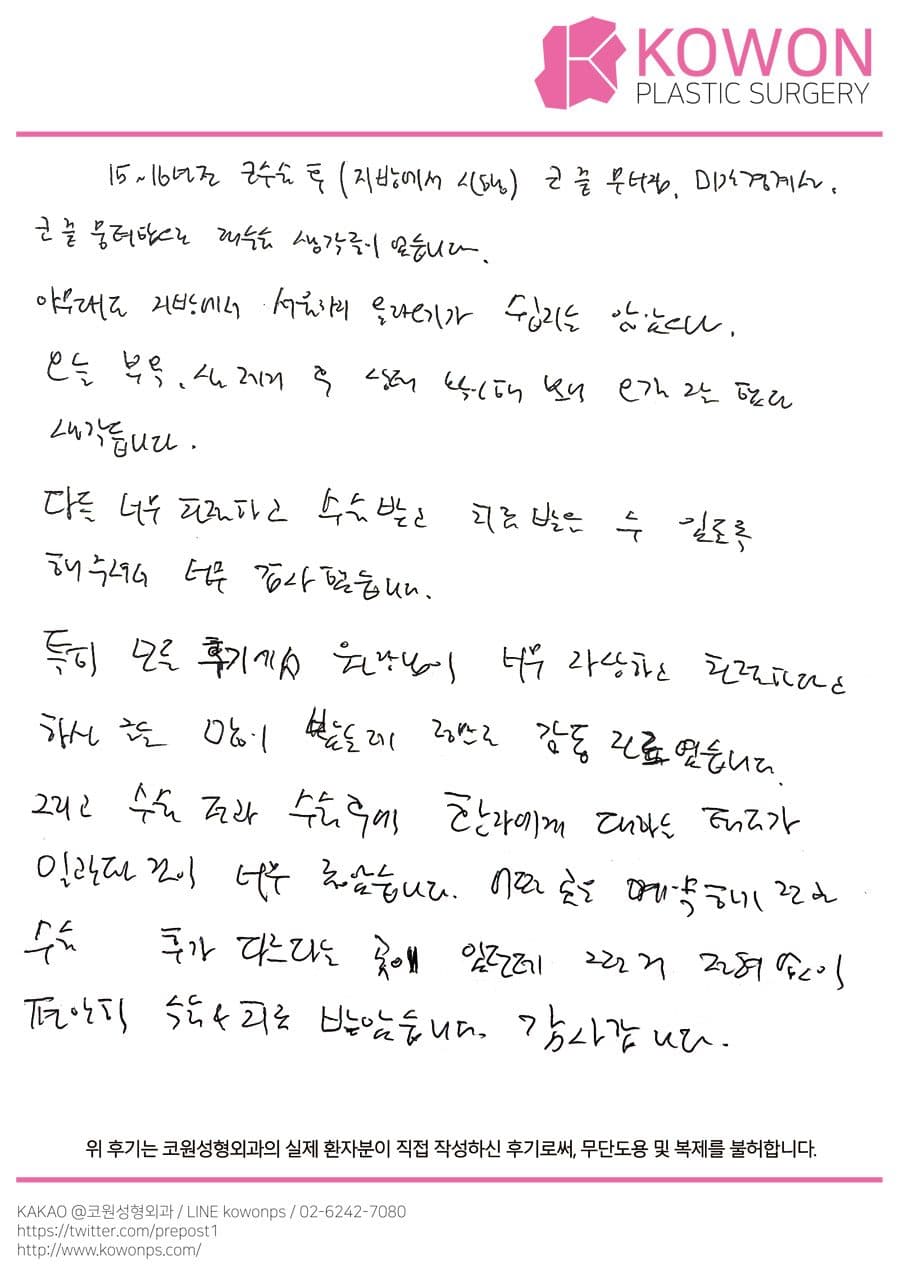 KOWON
PLASTIC SURGERY
15~16년전 코수술 후 (지방에서 시행) 코 끝
코 끝 뭉터함으로 재수술 생각중이었습니다.
아무래도 지방에서 서울까지 올라오기가 쉽지는 않았으나,
오늘 부목, 실 제거 후 상태 보니 오길 잘 했다
생각듭니다.
다들 너무 친절하고 수술 받고 치료 받을 수 있도록
해주셔서 너무 감사했습니다.
특히 모든 후기에서 원장님이 너무 자상하고 친절하다고
하신 글을 많이 봤는데 정말로 감동 진료였습니다.
그리고 수술 전과 수술 후에 환자에게 대하는 태도가
일관된 것이 너무 좋았습니다. 어떤 곳은 예약하기 전과
수술 후가 다르다는 곳에 있던데 그런 거 전혀 없이
편안히 수술&치료 받았습니다. 감사합니다.
위 후기는 코원성형외과의 실제 환자분이 직접 작성하신 후기로써, 무단도용 및 복제를 불허합니다.
KAKAO @코원성형외과 / LINE kowonps / 02-6242-7080
https://twitter.com/prepost1
http://www.kowonps.com/